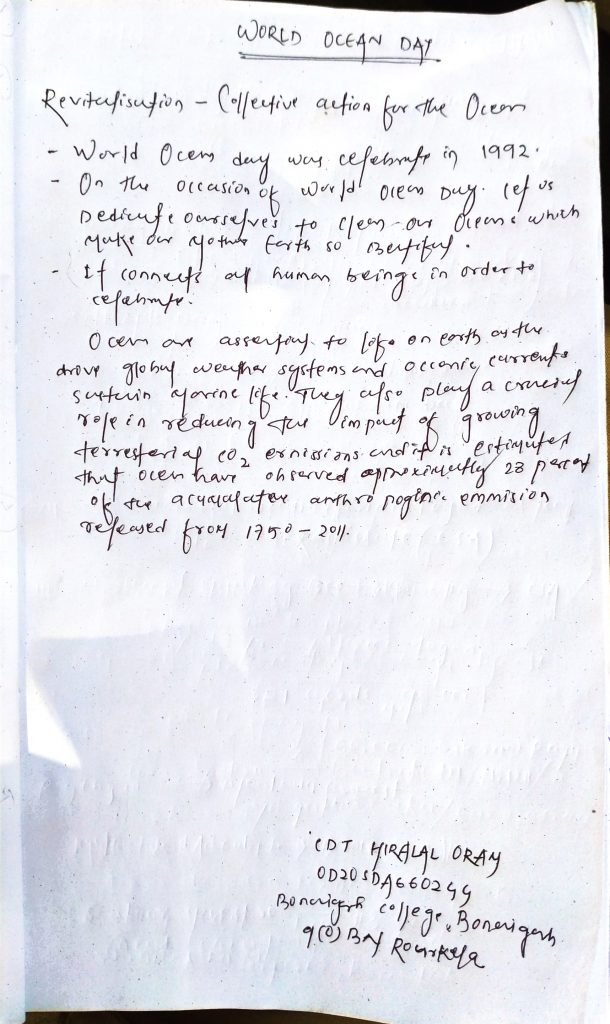 WORLD OCEAN DAY
Revitalisation - Collective action for the Ocean
- World Ocem day was celebrate in 1992.
- On the occasion of World Ocem Day. let us
Dedicate ourselves to clean our Oceans which
Make our Mother Earth so Beutiful.
- It connects all human beings in order to
celebrate.
Ocem are assential to life on earth as the
drove global weather systems and occenic currents
sustain Marine life. They also play a crucial
role in reducing the impact of growing
terresterial CO2 ernissions and it is estimated
that ocem have observed approximatly 28 percent
of the anthro poginic emmission
released from 1750 - 2011.
CDT HIRALAL ORAM
OD20SDA660244
Bonaigarh college, Bonaigarh
9(O) BN Rourkela